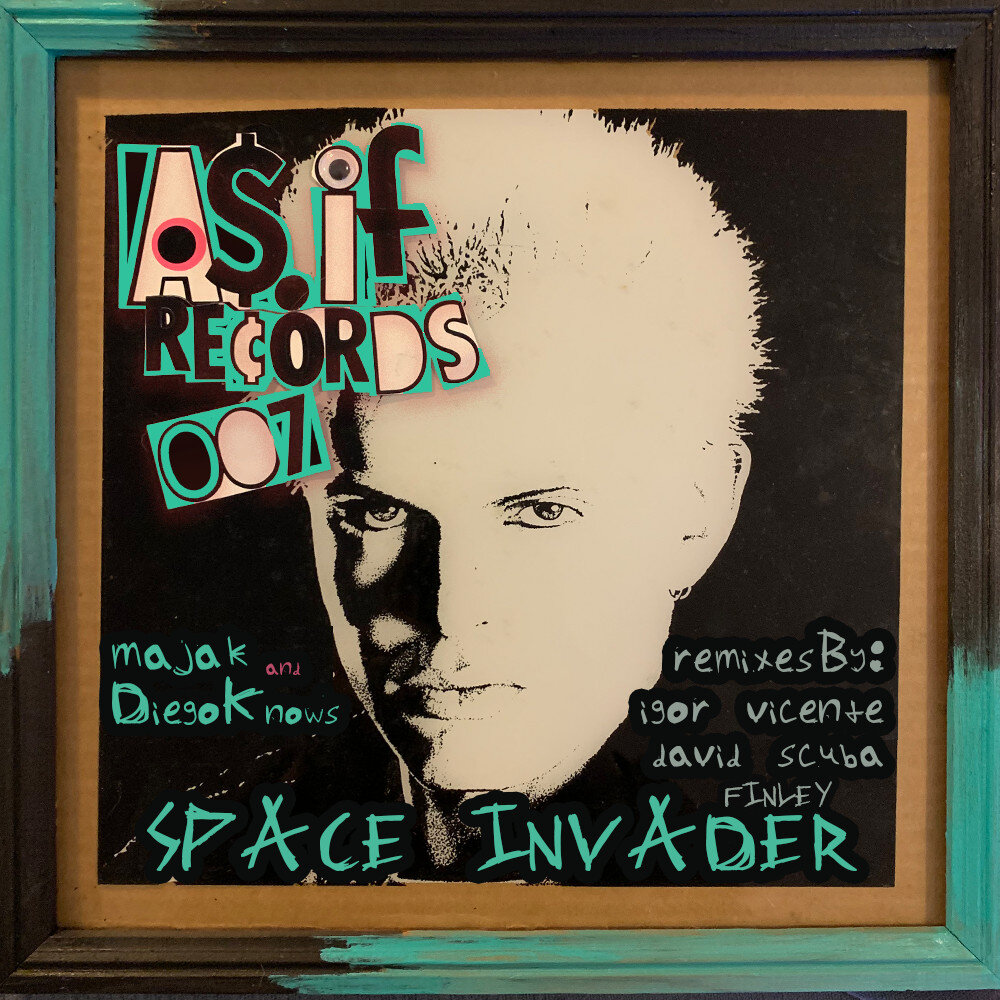 A$.if
RE¢ORDS
007
majak and
DiegoKnows
remixesBy:
igor vicente
david scuba
FINLEY
SPACE INVADER